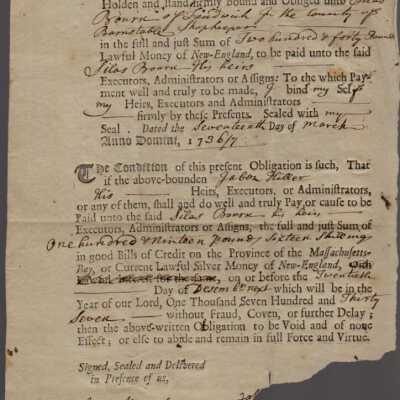 Holden and stand firmly Bound and Obliged unto Silas
Bourn of Sandwich in the County of
Barnstable Shopkeeper
in the full and just Sum of Two hundred & forty Pounds
Lawful Money of New-England, to be paid unto the said
Silas Bourn his heirs
Executors, Administrators or Assigns: To the which Pay-
ment well and truly to be made, I bind my Self
my Heirs, Executors and Administrators
firmly by these Presents. Sealed with my
Seal. Dated the Seventeenth Day of March
Anno Domini, 1736/7
The Condition of this present Obligation is such, That
if the above-bounden Jabez
his Heirs, Executors, or Administrators,
or any of them, shall and do well and truly Pay, or cause to be
Paid unto the said Silas Bourn his heirs
Executors, Administrators or Assigns, the full and just Sum of
One hundred & Nineteen pounds Sixteen Shillings
in good Bills of Credit on the Province of the Massachusetts-
Bay, or Current Lawful Silver Money of New-England,
on or before the Twentieth
Day of December next which will be in the
Year of our Lord, One Thousand Seven Hundred and Thirty
Seven without Fraud, Coven, or further Delay;
then the above-written Obligation to be Void and of none
Effect; or else to abide and remain in full Force and Virtue.
Signed, Sealed and Delivered
in Presence of us,